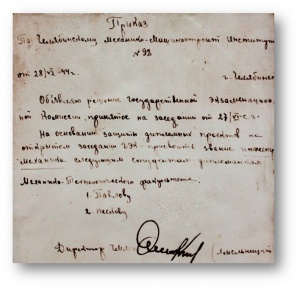 Приказ
По Челябинскому Механико-Машиностроит Институту
№ 92
от 28/VI-44г. г. Челябинск
Объявляю решение Государственной Экзаменацион-
ной Комиссии, принятое на заседании от 27/VI-с.г.
На основании защиты дипломных проектов на
открытом заседании ГЭК присвоить звание инженера
механика следующим студентам-дипломантам
Механико-Технологического факультета.
1. Павлову
2. Маслову
Директор